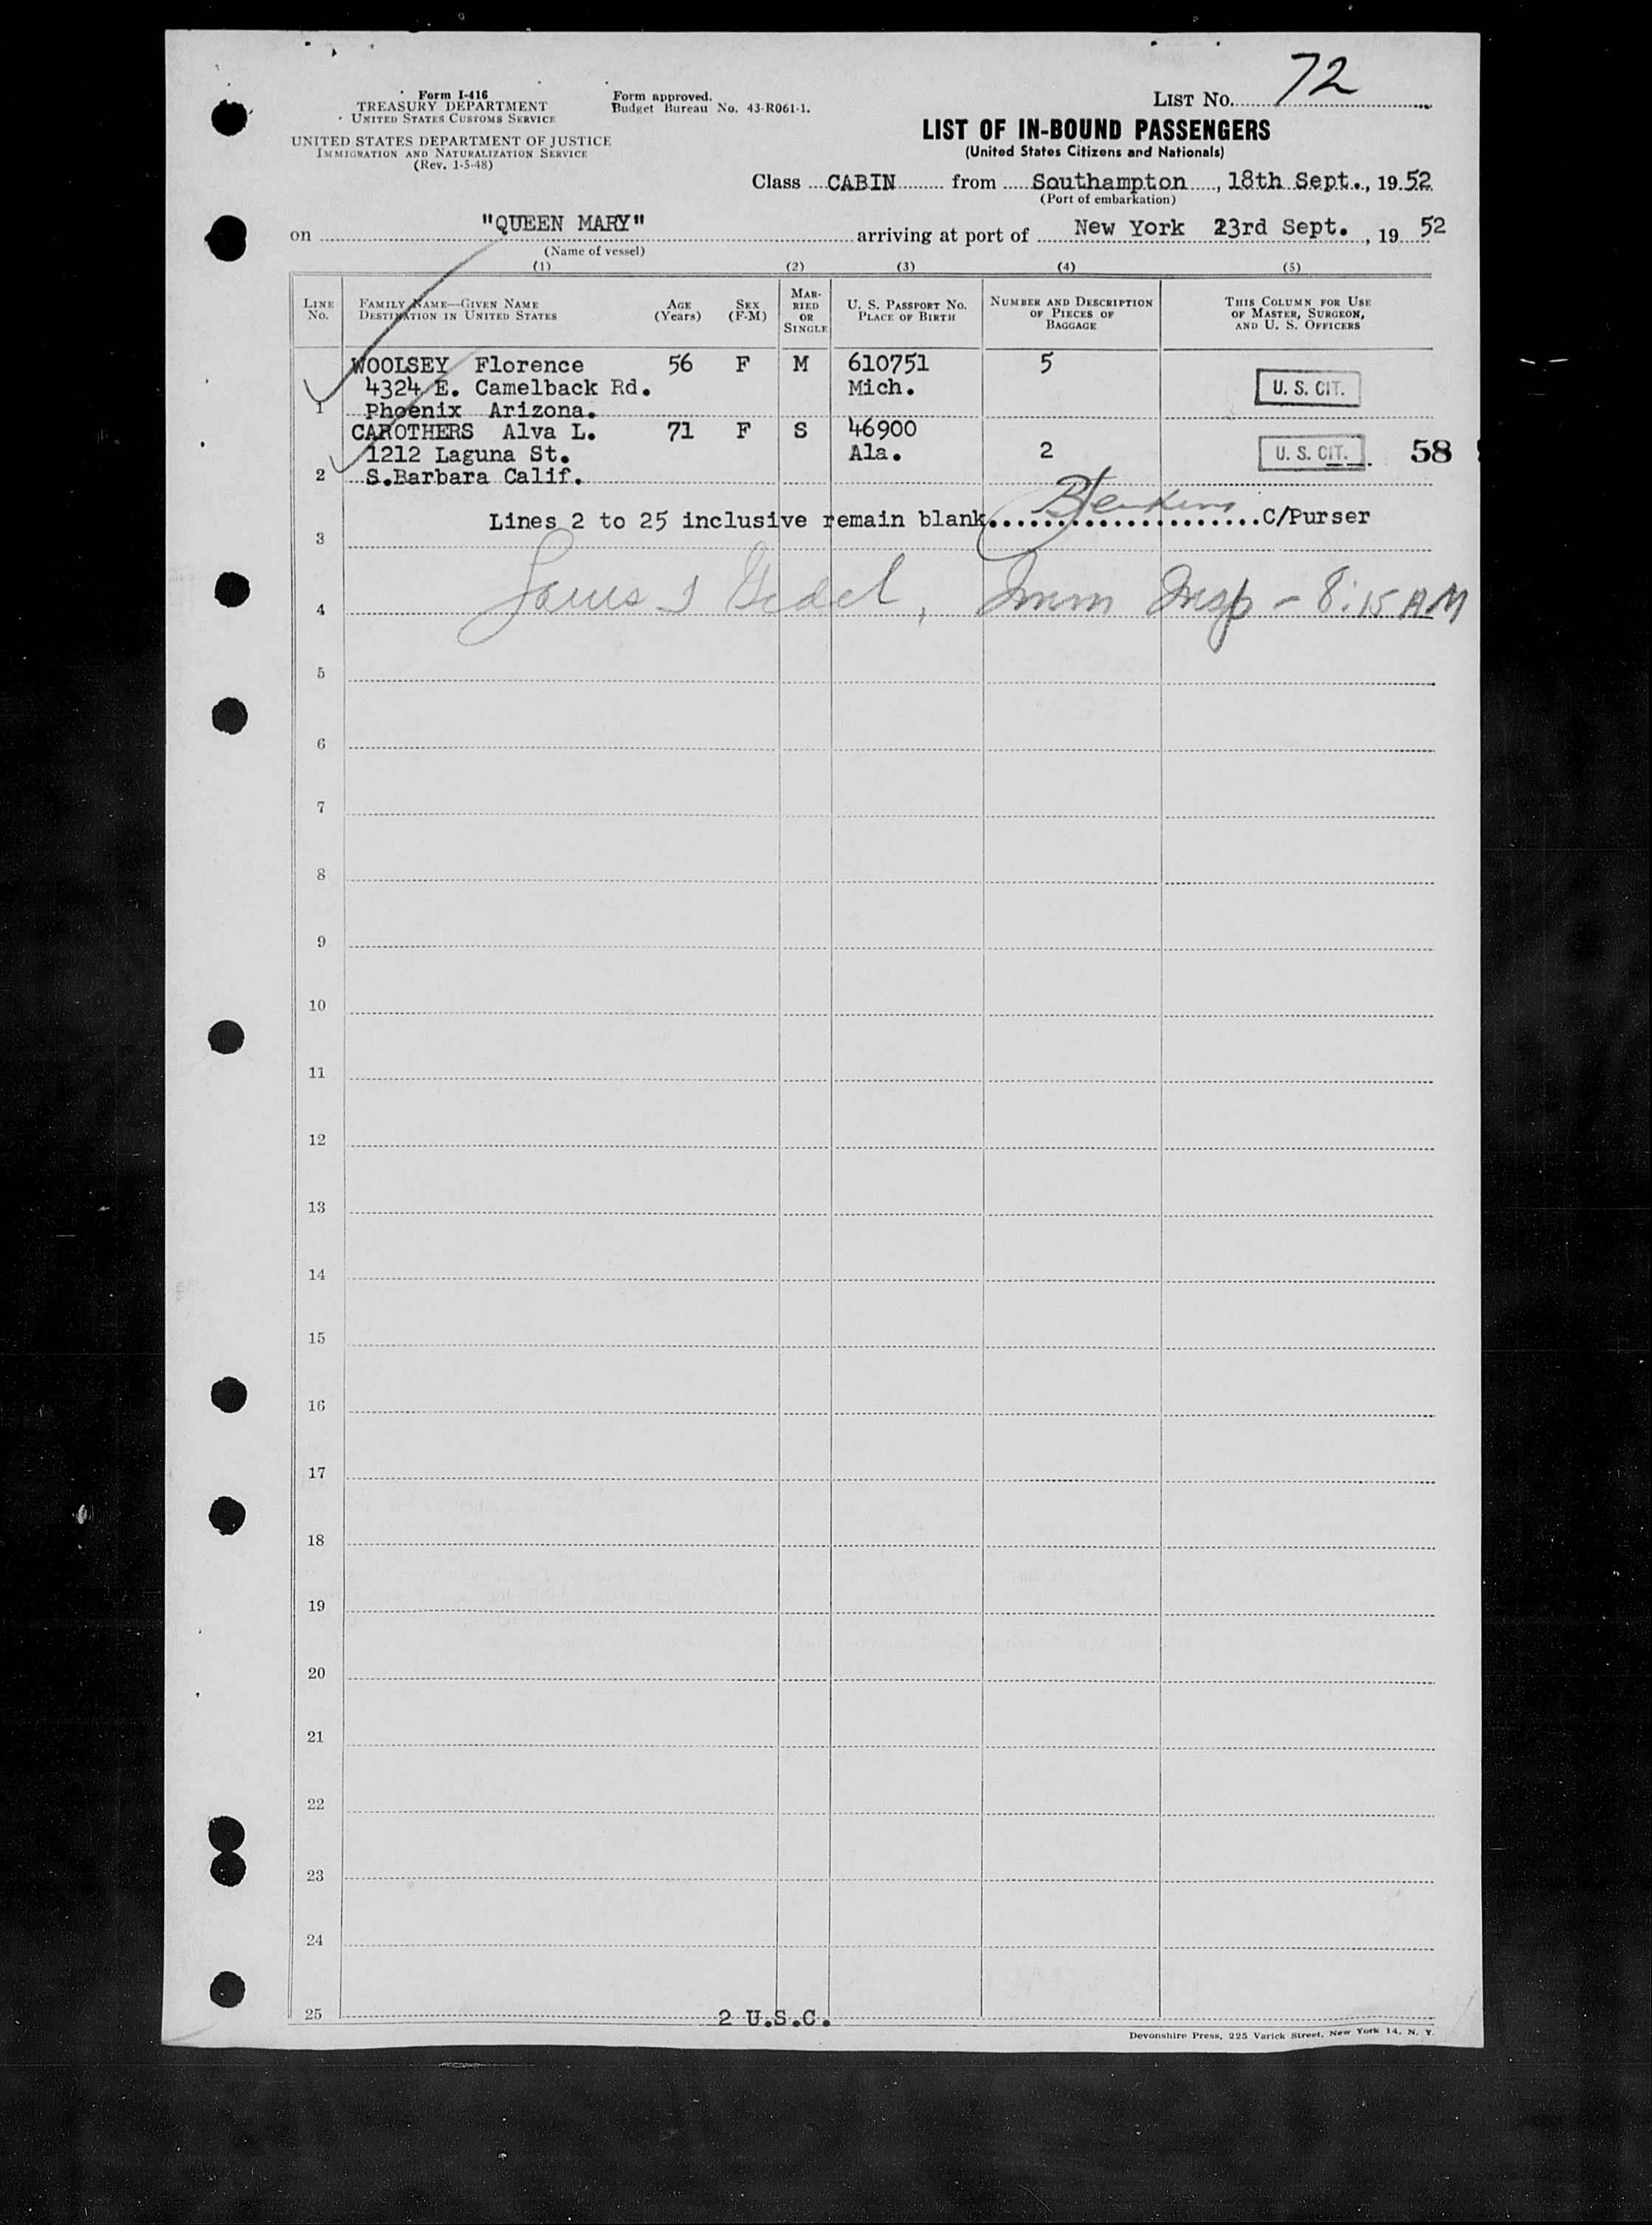 Form I-416
TREASURY DEPARTMENT
UNITED STATES CUSTOMS SERVICE
UNITED STATES DEPARTMENT OF JUSTICE
IMMIGRATION AND NATURALIZATION SERVICE
(Rev. 1-5-48)
Form approved.
Budget Bureau No. 43-R061-1.
LIST NO. 72
LIST OF IN-BOUND PASSENGERS
(United States Citizens and Nationals)
Class CABIN from Southampton, 18th Sept., 1952
(Port of embarkation)
on "QUEEN MARY" arriving at port of New York 23rd Sept., 19 52
(Name of vessel)
(1) (2) (3) (4) (5)
LINE NO.
FAMILY NAME—GIVEN NAME
DESTINATION IN UNITED STATES
AGE (Years)
SEX (F-M)
MARRIED OR SINGLE
U. S. PASSPORT NO.
PLACE OF BIRTH
NUMBER AND DESCRIPTION OF PIECES OF BAGGAGE
THIS COLUMN FOR USE OF MASTER, SURGEON, AND U. S. OFFICERS
WOOLSEY Florence 56 F M 610751 5
4324 E. Camelback Rd. Mich. U. S. CIT.
1 Phoenix Arizona.
CAROTHERS Alva L. 71 F S 46900
1212 Laguna St. Ala. 2 U. S. CIT. 58
2 S.Barbara Calif.
Lines 2 to 25 inclusive remain blank.....................C/Purser
3
4 Imm Insp - 8:15 AM
5
6
7
8
9
10
11
12
13
14
15
16
17
18
19
20
21
22
23
24
25 2 U.S.C.
Devonshire Press, 225 Varick Street, New York 14, N. Y.